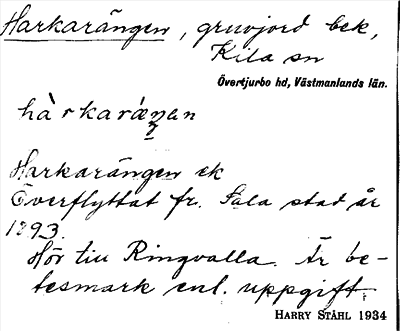 Harkarängen, gruvjord bek,
Kila sn
Övertjurbo hd, Västmanlands län.
hàrkaráeŋen
Harkarängen ek
Överflyttat fr. Sala stad år
1893.
Hör till Ringvalla. Är be-
tesmark enl. uppgift.
HARRY STÅHL 1934